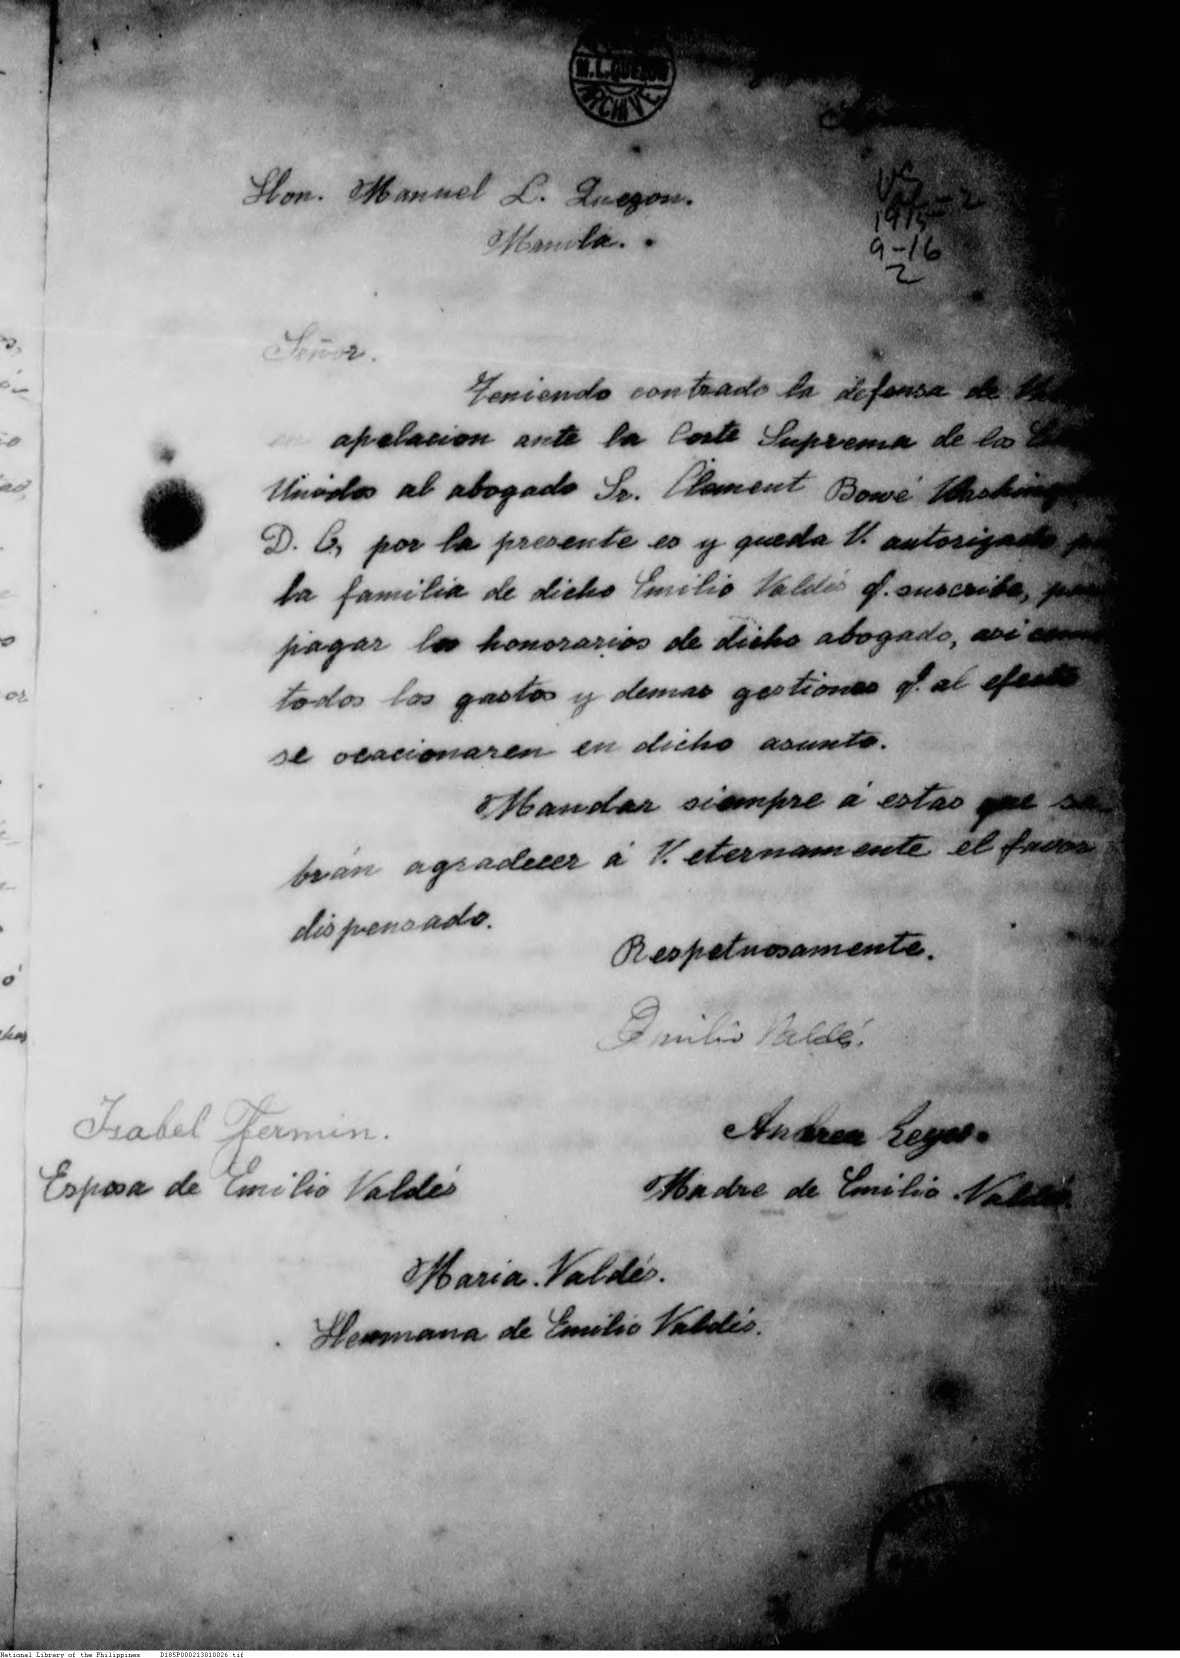 M. L. QUEZON
ARCHIVE
Hon. Manuel L. Quezon.
Manila.
1915
9-16
2
Señor.
Teniendo contrado la defensa de
en apelacion ante la Corte Suprema de los
Unidos al abogado Sr. Clement Bowé Washing
D. C, por la presente es y queda V. autorizado
la familia de dicho Emilio Valdés q. suscribe,
pagar los honorarios de dicho abogado, asi como
todos los gastos y demas gestiones q. al efecto
se ocacionaren en dicho asunto.
Mandar siempre á estas que sa
brán agradecer á V. eternamente el favor
dispensado.
Respetuosamente.
Emilio Valdés.
Isabel Fermin.
Andrea Reyes.
Esposa de Emilio Valdés
Madre de Emilio Valdés.
Maria Valdés.
Hermana de Emilio Valdés.
National Library of the Philippines D185P000213010026.tif